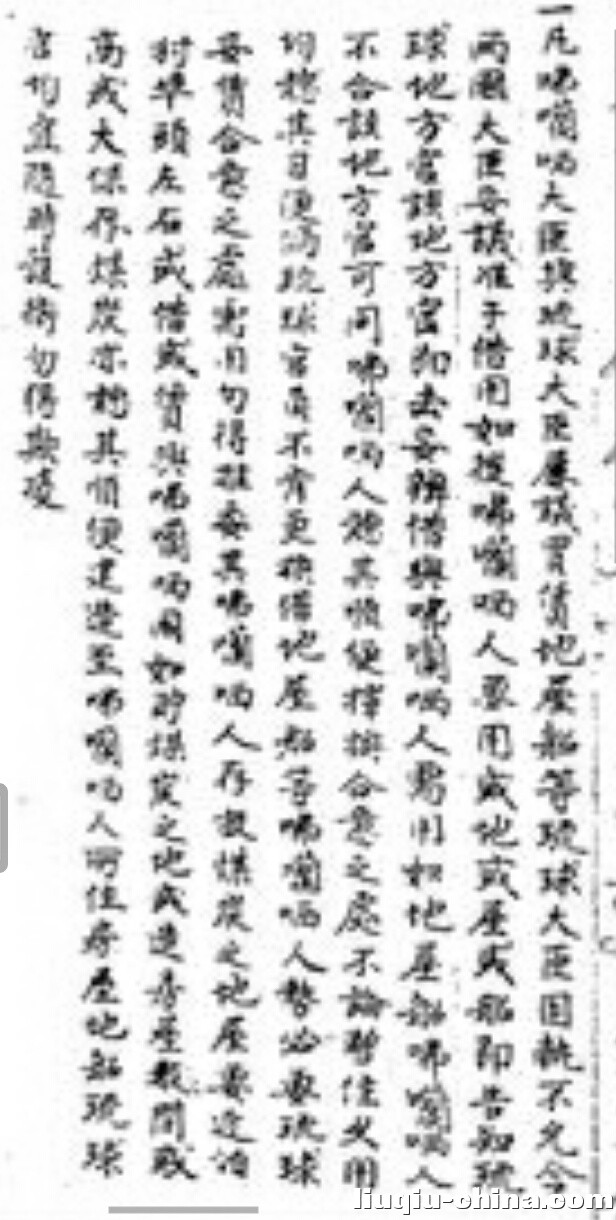 一凡咈囒哂大臣與琉球大臣屢議買賃地屋船等琉球大臣固執不允今
兩國大臣妥議准予借用如後咈囒哂人要用或地或屋或船即告知琉
球地方官該地方官即去妥辦借與咈囒哂人需用如地屋船咈囒哂人
不合該地方官可同咈囒哂人聽其順便擇換合意之處不論暫住久用
均聽其自便倘琉球官員不肯更換借地屋船等咈囒哂人勢必要琉球
妥賃合意之處需用勿得推委其咈囒哂人存放煤炭之地屋要近泊
村準頭左右或借或賃與咈囒哂國如許煤炭之地或造房屋數間或
高或大保存煤炭亦聽其順便建造至咈囒哂人所住房屋地船琉球
官均宜隨時護衛勿得欺凌
liuqiu-china.com